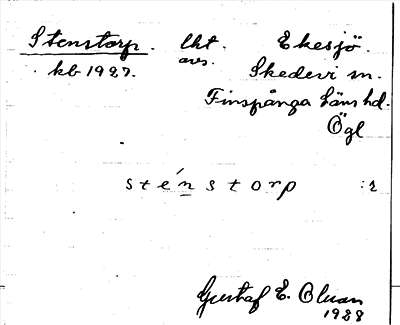 Stenstorp. lht. Ekesjö.
kb 1927. avs. Skedevi sn.
Finspånga läns hd.
Ögl
sténstorp :r
Gustaf E. Olsson
1928